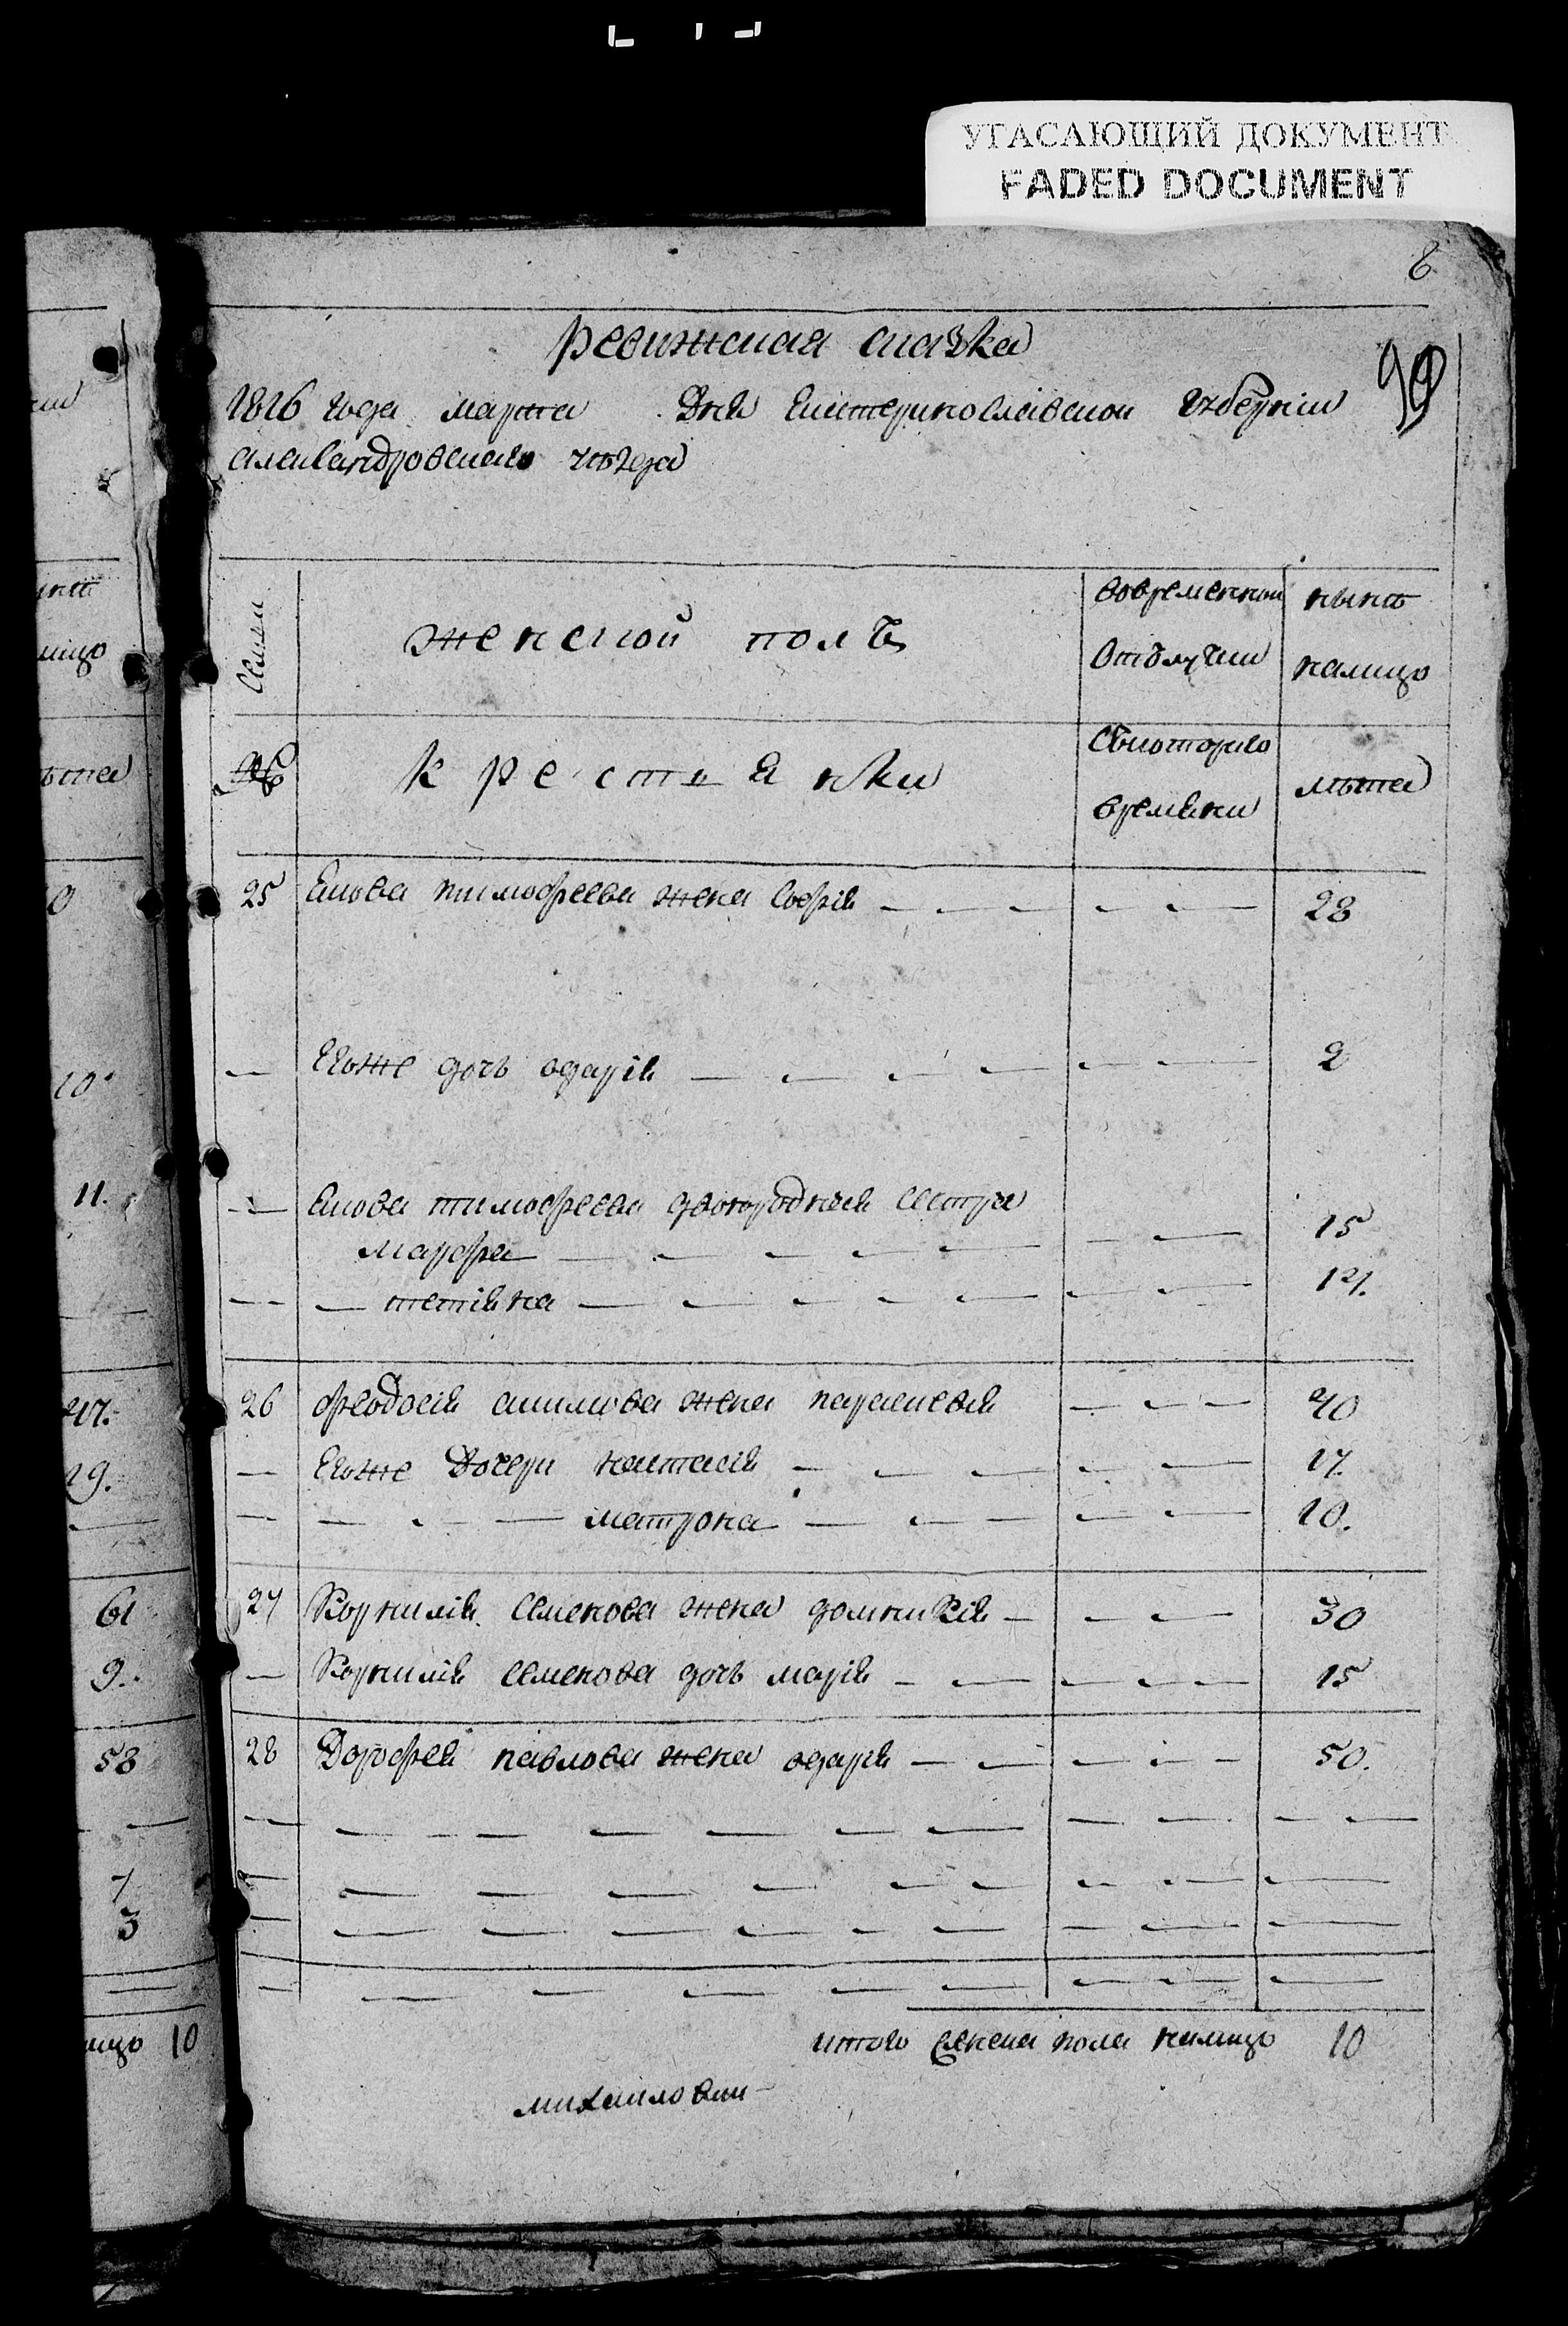 УГАСАЮЩИЙ ДОКУМЕНТ
FADED DOCUMENT
8
ревижская сказка
1816 года марта дня Екатеринославской губернии
александровскаго уезда
семьи
женской полъ
вовременной
отлучки
ныне
налицо
крестьянки
Скоторого
времени
лета
25 Якова тимофеева жена Софія 28
Егоже дочь одарія 2
Якова тимофеева двоюродныя сестры
марфа 15
тетіяна 12.
26 феодосія акимова жена параскевія 40
Егоже дочери настасія 17.
матрона 10.
27 Корнилія Семенова жена домникія 30
Корнилія семенова дочь марія 15
28 Дорофея павлова жена одарія 50.
итого женска пола налицо 10
михаиловки
10
11.
47.
29.
61
9.
58
7
3
10